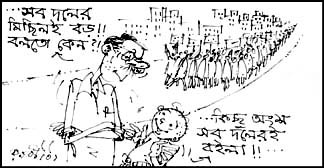 ...সব দলের
মিছিলই বড়!!
বলতো কেন?!
...কিছু অংশ
সব দলেরই